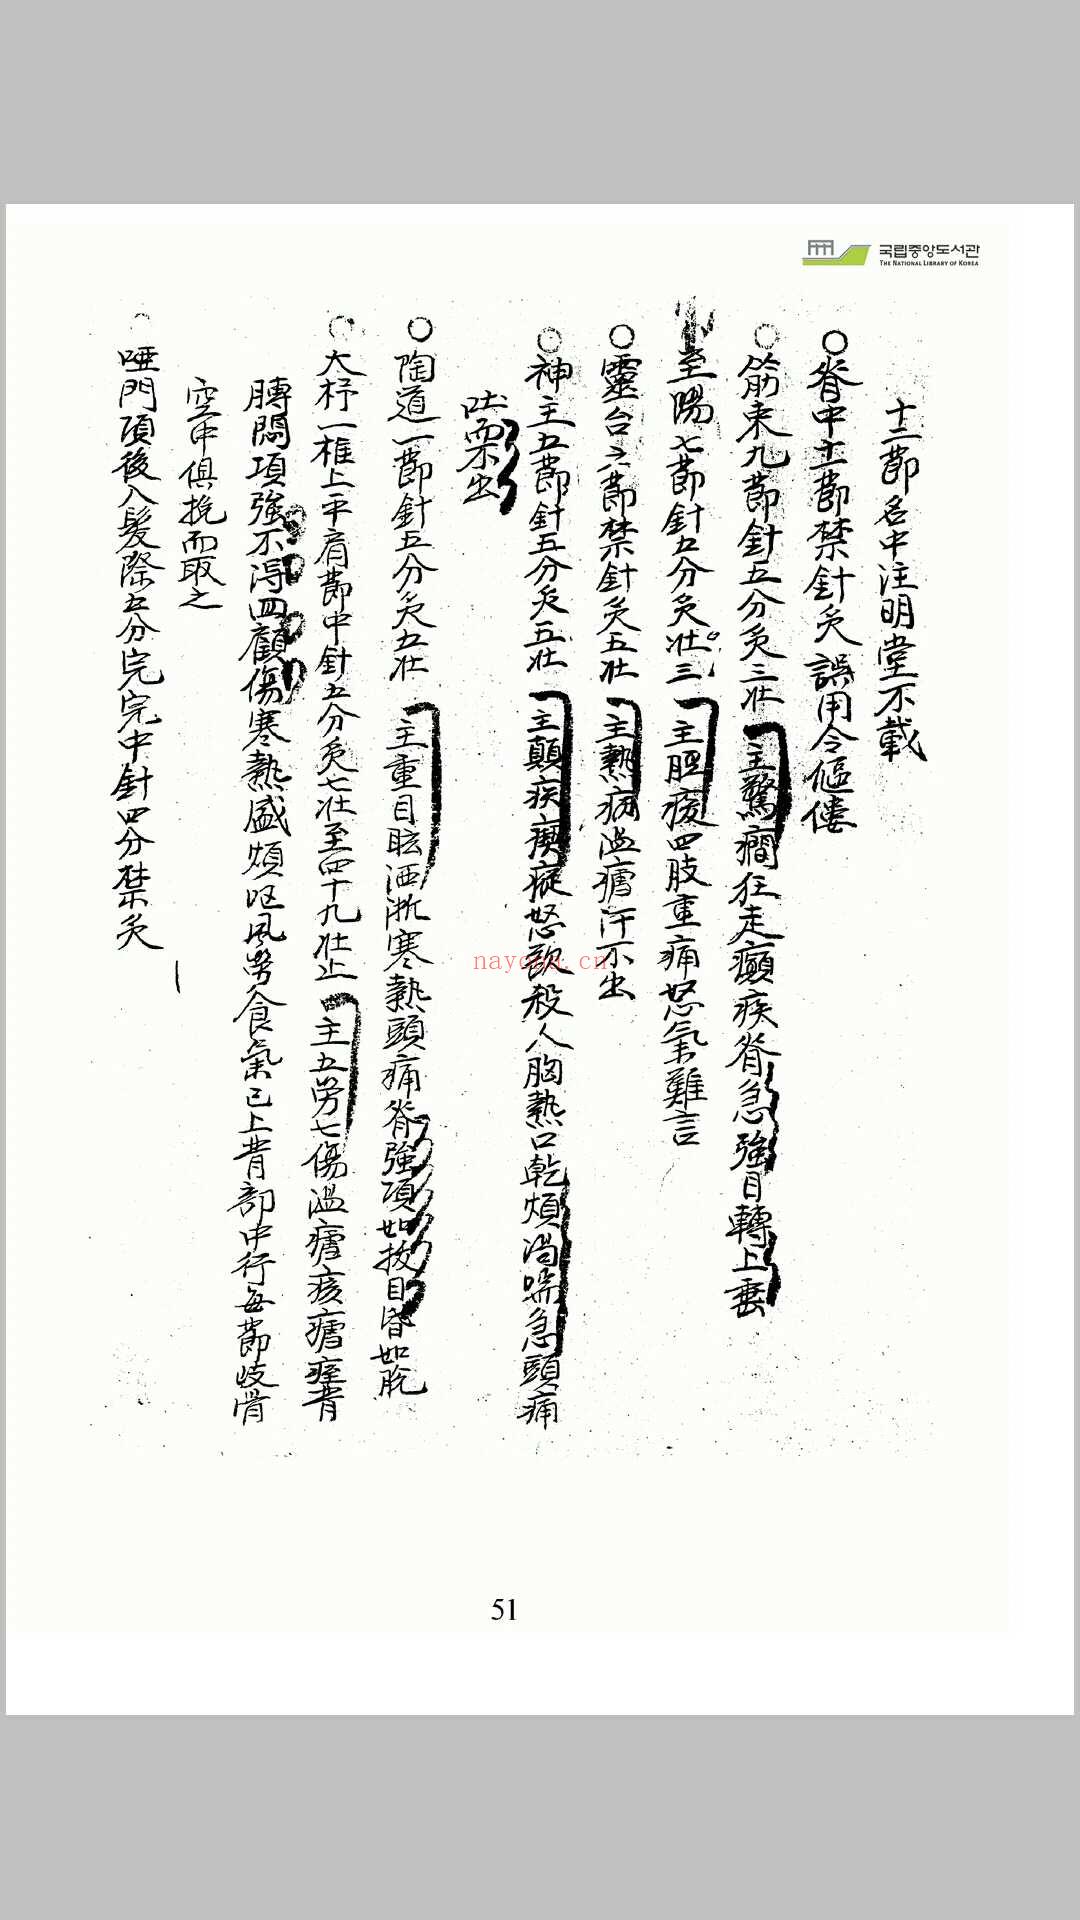 국립중앙도서관
THE NATIONAL LIBRARY OF KOREA
十二節名中注明堂不載
○脊中十一節禁針灸誤用令傴僂
○筋束九節針五分灸三壯 主驚癎狂走癲疾脊急強目轉上垂
至陽七節針五分灸壯三 主胆痿四肢重痛怒氣難言
○靈台六節禁針灸五壯 主熱病溫瘧汗不出
○神主五節針五分灸五壯 主顛疾瘈瘲怒欲殺人胸熱口乾煩渴喘急頭痛
吐而不出
○陶道一節針五分灸五壯 主重目眩洒淅寒熱頭痛脊強項如拔目昏如脫
○大杼一椎上平肩節中針五分灸七壯至四十九壯止 主五勞七傷溫瘧痎瘧痓背
膊悶項強不得四顧傷寒熱盛煩呕風勞食氣已上背部中行每節岐骨
空中俱挽而取之
○啞門項後入髮際五分宛宛中針四分禁灸
nayona.cn
51